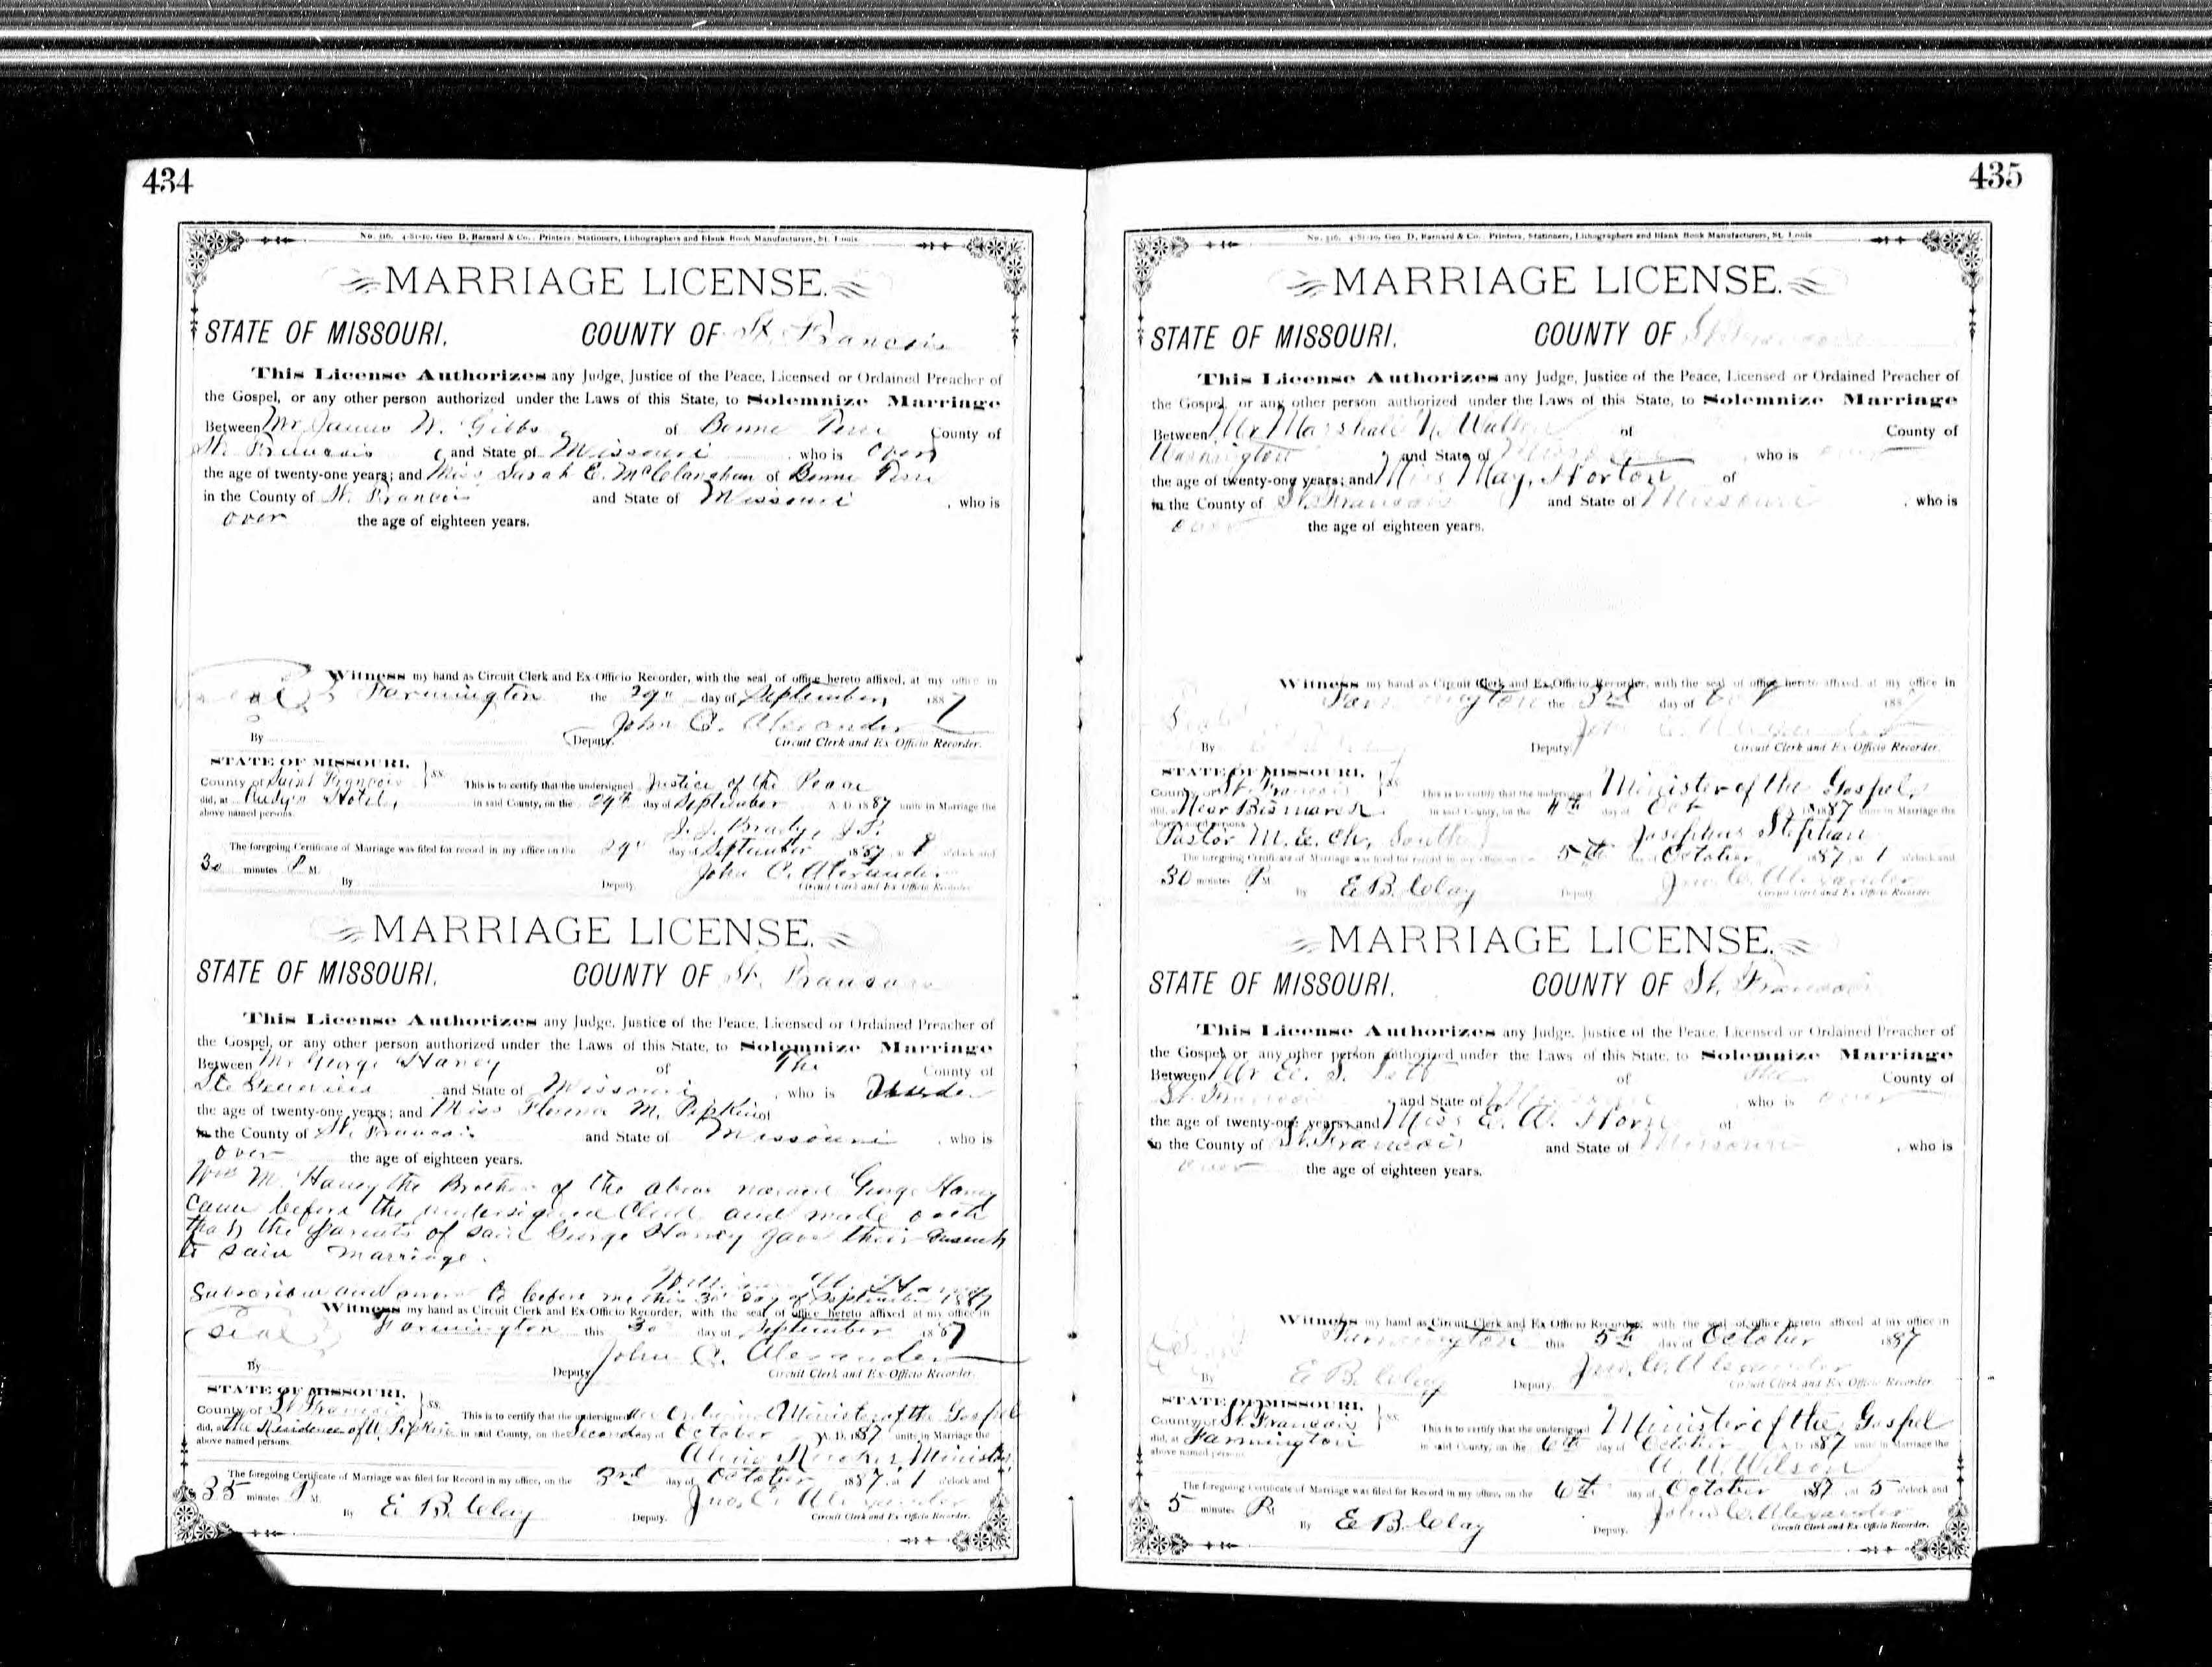 434
No. 316. 4-81-10. Geo D. Barnard & Co., Printers, Stationers, Lithographers and Blank Book Manufacturers, St. Louis
MARRIAGE LICENSE.
STATE OF MISSOURI. COUNTY OF St. Francois
This License Authorizes any Judge, Justice of the Peace, Licensed or Ordained Preacher of
the Gospel, or any other person authorized under the Laws of this State, to Solemnize Marriage
Between Mr James W. Gibbs of Bonne Terre County of
St. Francois and State of Missouri who is over
the age of twenty-one years; and Miss Sarah E. McClanahan of Bonne Terre
in the County of St. Francois and State of Missouri, who is
over the age of eighteen years.
Witness my hand as Circuit Clerk and Ex-Officio Recorder, with the seal of office hereto affixed, at my office in
Farmington the 29" day of September, 1887
John C. Alexander
By Deputy. Circuit Clerk and Ex-Officio Recorder.
STATE OF MISSOURI,
County of Saint Francois } SS. This is to certify that the undersigned Justice of the Peace
did, at Hotel, in said County, on the 29th day of September A. D. 1887 unite in Marriage the
above named persons.
J. J. Brady, J.P.
The foregoing Certificate of Marriage was filed for record in my office on the 29" day of September 1887 at 8 o'clock and
30 minutes P. M. John C. Alexander
By Deputy Circuit Clerk and Ex-Officio Recorder
MARRIAGE LICENSE.
STATE OF MISSOURI. COUNTY OF St. Francois
This License Authorizes any Judge, Justice of the Peace, Licensed or Ordained Preacher of
the Gospel, or any other person authorized under the Laws of this State, to Solemnize Marriage
Between Mr George Haney of The County of
Ste Genevieve and State of Missouri, who is Under
the age of twenty-one years; and Miss Florence M. Pipkin of
in the County of St. Francois and State of Missouri, who is
over the age of eighteen years.
Wm M. Haney the Brother of the above named George Haney
came before the undersigned Clerk and made oath
that the Parents of said George Haney gave their consent
to said marriage.
William M. Haney
Subscribed and sworn to before me this 30 day of September 1887
Witness my hand as Circuit Clerk and Ex-Officio Recorder, with the seal of office hereto affixed at my office in
Seal Farmington this 30 day of September 1887
John C. Alexander
By Deputy Circuit Clerk and Ex-Officio Recorder.
STATE OF MISSOURI,
County of St. Francois } SS. This is to certify that the undersigned Ordained Minister of the Gospel
did, at the Residence of Pipkin in said County, on the Second day of October A. D. 1887 unite in Marriage the
above named persons. Minister
The foregoing Certificate of Marriage was filed for Record in my office, on the 3rd day of October 1887 at 1 o'clock and
35 minutes P. M. Jno. C. Alexander
By E. B. Clay Deputy. Circuit Clerk and Ex-Officio Recorder.
435
No. 316. 4-81-10. Geo D. Barnard & Co., Printers, Stationers, Lithographers and Blank Book Manufacturers, St. Louis
MARRIAGE LICENSE.
STATE OF MISSOURI. COUNTY OF St Francois
This License Authorizes any Judge, Justice of the Peace, Licensed or Ordained Preacher of
the Gospel, or any other person authorized under the Laws of this State, to Solemnize Marriage
Between Mr Marshall N. Walton of County of
Washington and State of Missouri, who is over
the age of twenty-one years; and Miss May, Horton of
in the County of St. Francois and State of Missouri, who is
over the age of eighteen years.
Witness my hand as Circuit Clerk and Ex-Officio Recorder, with the seal of office hereto affixed, at my office in
Seal Farmington the 3rd day of Oct 1887
Jno C. Alexander
By Deputy Circuit Clerk and Ex-Officio Recorder.
STATE OF MISSOURI,
County of St. Francois } SS This is to certify that the undersigned Minister of the Gospel,
did, at Near Bismarck in said County, on the 4th day of Oct 1887 unite in Marriage the
above named persons
Pastor M. E. Ch, South Josephus Stephan
The foregoing Certificate of Marriage was filed for record in my office on the 5th day of October 1887 at 1 o'clock and
30 minutes P. M. Jno. C. Alexander
By E. B. Clay Deputy. Circuit Clerk and Ex-Officio Recorder
MARRIAGE LICENSE.
STATE OF MISSOURI. COUNTY OF St. Francois
This License Authorizes any Judge, Justice of the Peace, Licensed or Ordained Preacher of
the Gospel, or any other person authorized under the Laws of this State, to Solemnize Marriage
Between Mr E. S. of the County of
St. Francois and State of Missouri, who is over
the age of twenty-one years; and Miss E. A. Horn of
in the County of St. Francois and State of Missouri, who is
over the age of eighteen years.
Witness my hand as Circuit Clerk and Ex-Officio Recorder, with the seal of office hereto affixed at my office in
Farmington this 5th day of October 1887
Jno. C. Alexander
By E. B. Clay Deputy. Circuit Clerk and Ex-Officio Recorder.
STATE OF MISSOURI,
County of St. Francois } SS. This is to certify that the undersigned Minister of the Gospel
did, at Farmington in said County, on the 6th day of October A. D. 1887 unite in Marriage the
above named persons A. W. Wilson
The foregoing Certificate of Marriage was filed for Record in my office, on the 6th day of October 1887 at 5 o'clock and
5 minutes P. M. John C. Alexander
By E. B. Clay Deputy. Circuit Clerk and Ex-Officio Recorder.